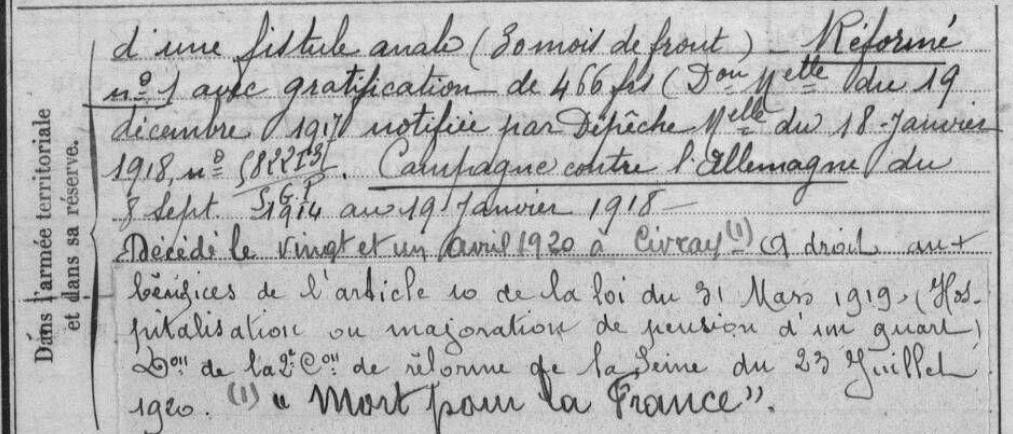 d'une fistule anale (30 mois de front) - Réformé
n° 1 avec gratification de 466 frs (Don Melle du 19
décembre 1917 notifiée par Dépêche Melle du 18-Janvier
1918, n° . Campagne contre l'Allemagne du
8 Sept. 1914 au 19 Janvier 1918 -
Décédé le vingt et un Avril 1920 à Civray (1) A droit aux
bénéfices de l'article 10 de la loi du 31 Mars 1919, (Hos-
pitalisation ou majoration de pension d'un quart)
Don de la 2e Con de réforme de la Seine du 23 Juillet
1920. (1) « Mort pour la France ».
Dans l'armée territoriale
et dans sa réserve.